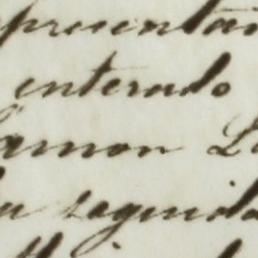 presenta
enterado
amon L
su seguida